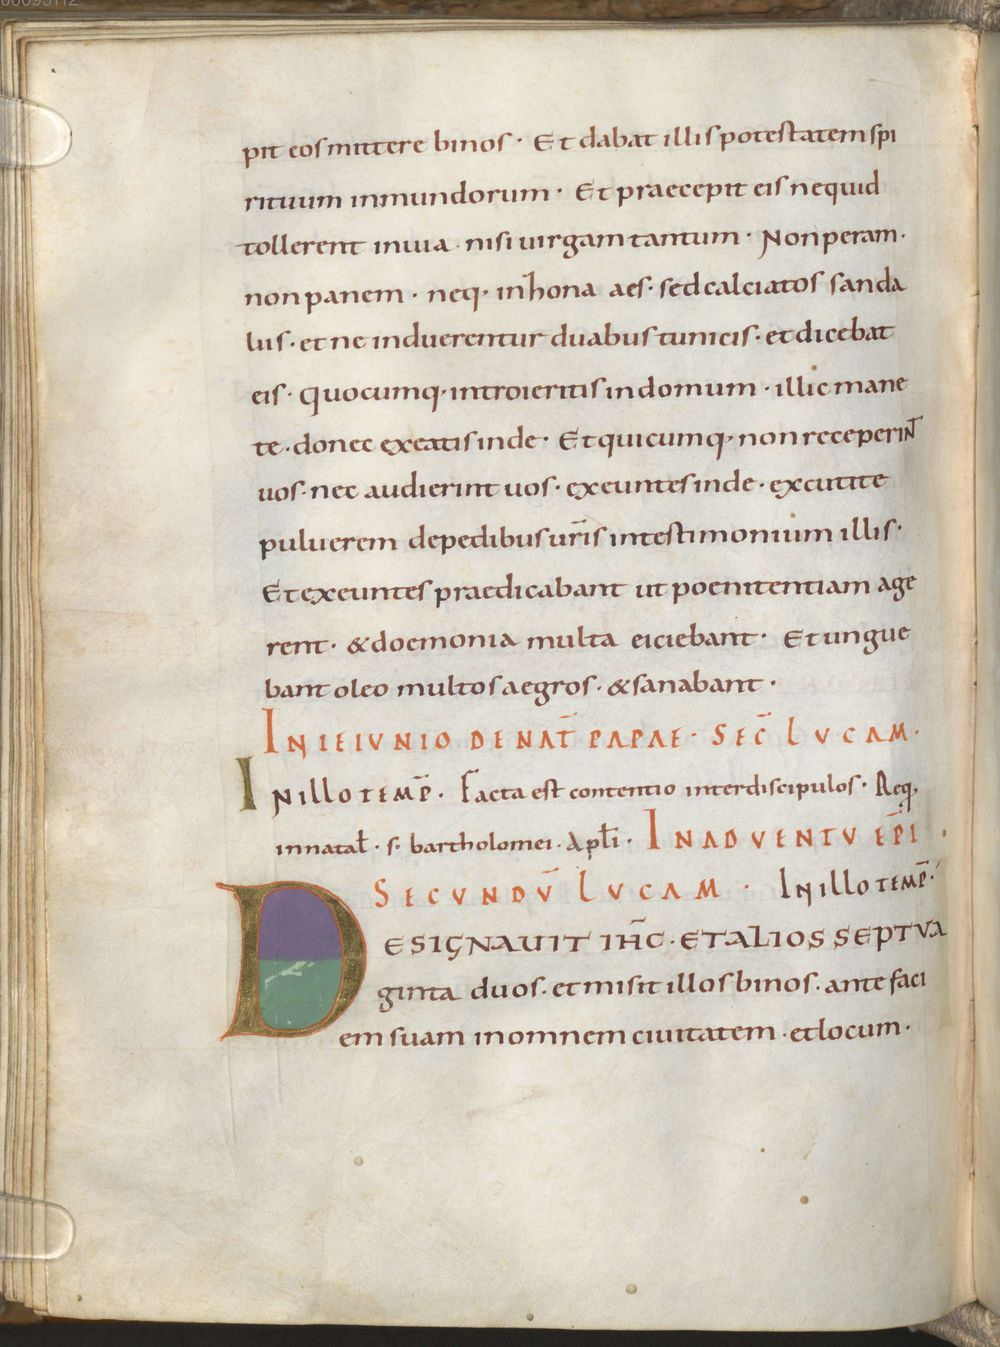 pit eos mittere binos · Et dabat illis potestatem spi
rituum inmundorum · Et praecepit eis nequid
tollerent in uia · nisi uirgam tantum · Non peram ·
non panem · neq· in zona aes · sed calciatos sanda
liis · et ne induerentur duabus tunicis · et dicebat
eis · Quocumq· introieritis in domum · illic mane
te · donec exeatis inde · Et quicumq· non receperiN̄T
uos · nec audierint uos · exeuntes inde · excutite
puluerem de pedibus ur̄is in testimonium illis ·
Et exeuntes praedicabant ut poenitentiam age
rent · & doemonia multa eiciebant · Et ungue
bant oleo multos aegros · & sanabant ·
IN IEIVNIO DE NAT̄ PAPAE · SEC̄ LVCAM ·
IN illo TEMP̄ · Facta est contentio inter discipulos · Req·
in natał · s · bartholomei · Apłi · IN ADVENTV EP̄I ·
SECVNDV̄ LVCAM · IN illo TEMP̄ ·
DESIGNAUIT IH̄C · ET ALIOS SEPTVA
ginta duos · et misit illos binos · ante faci
em suam in omnem ciuitatem · et locum ·